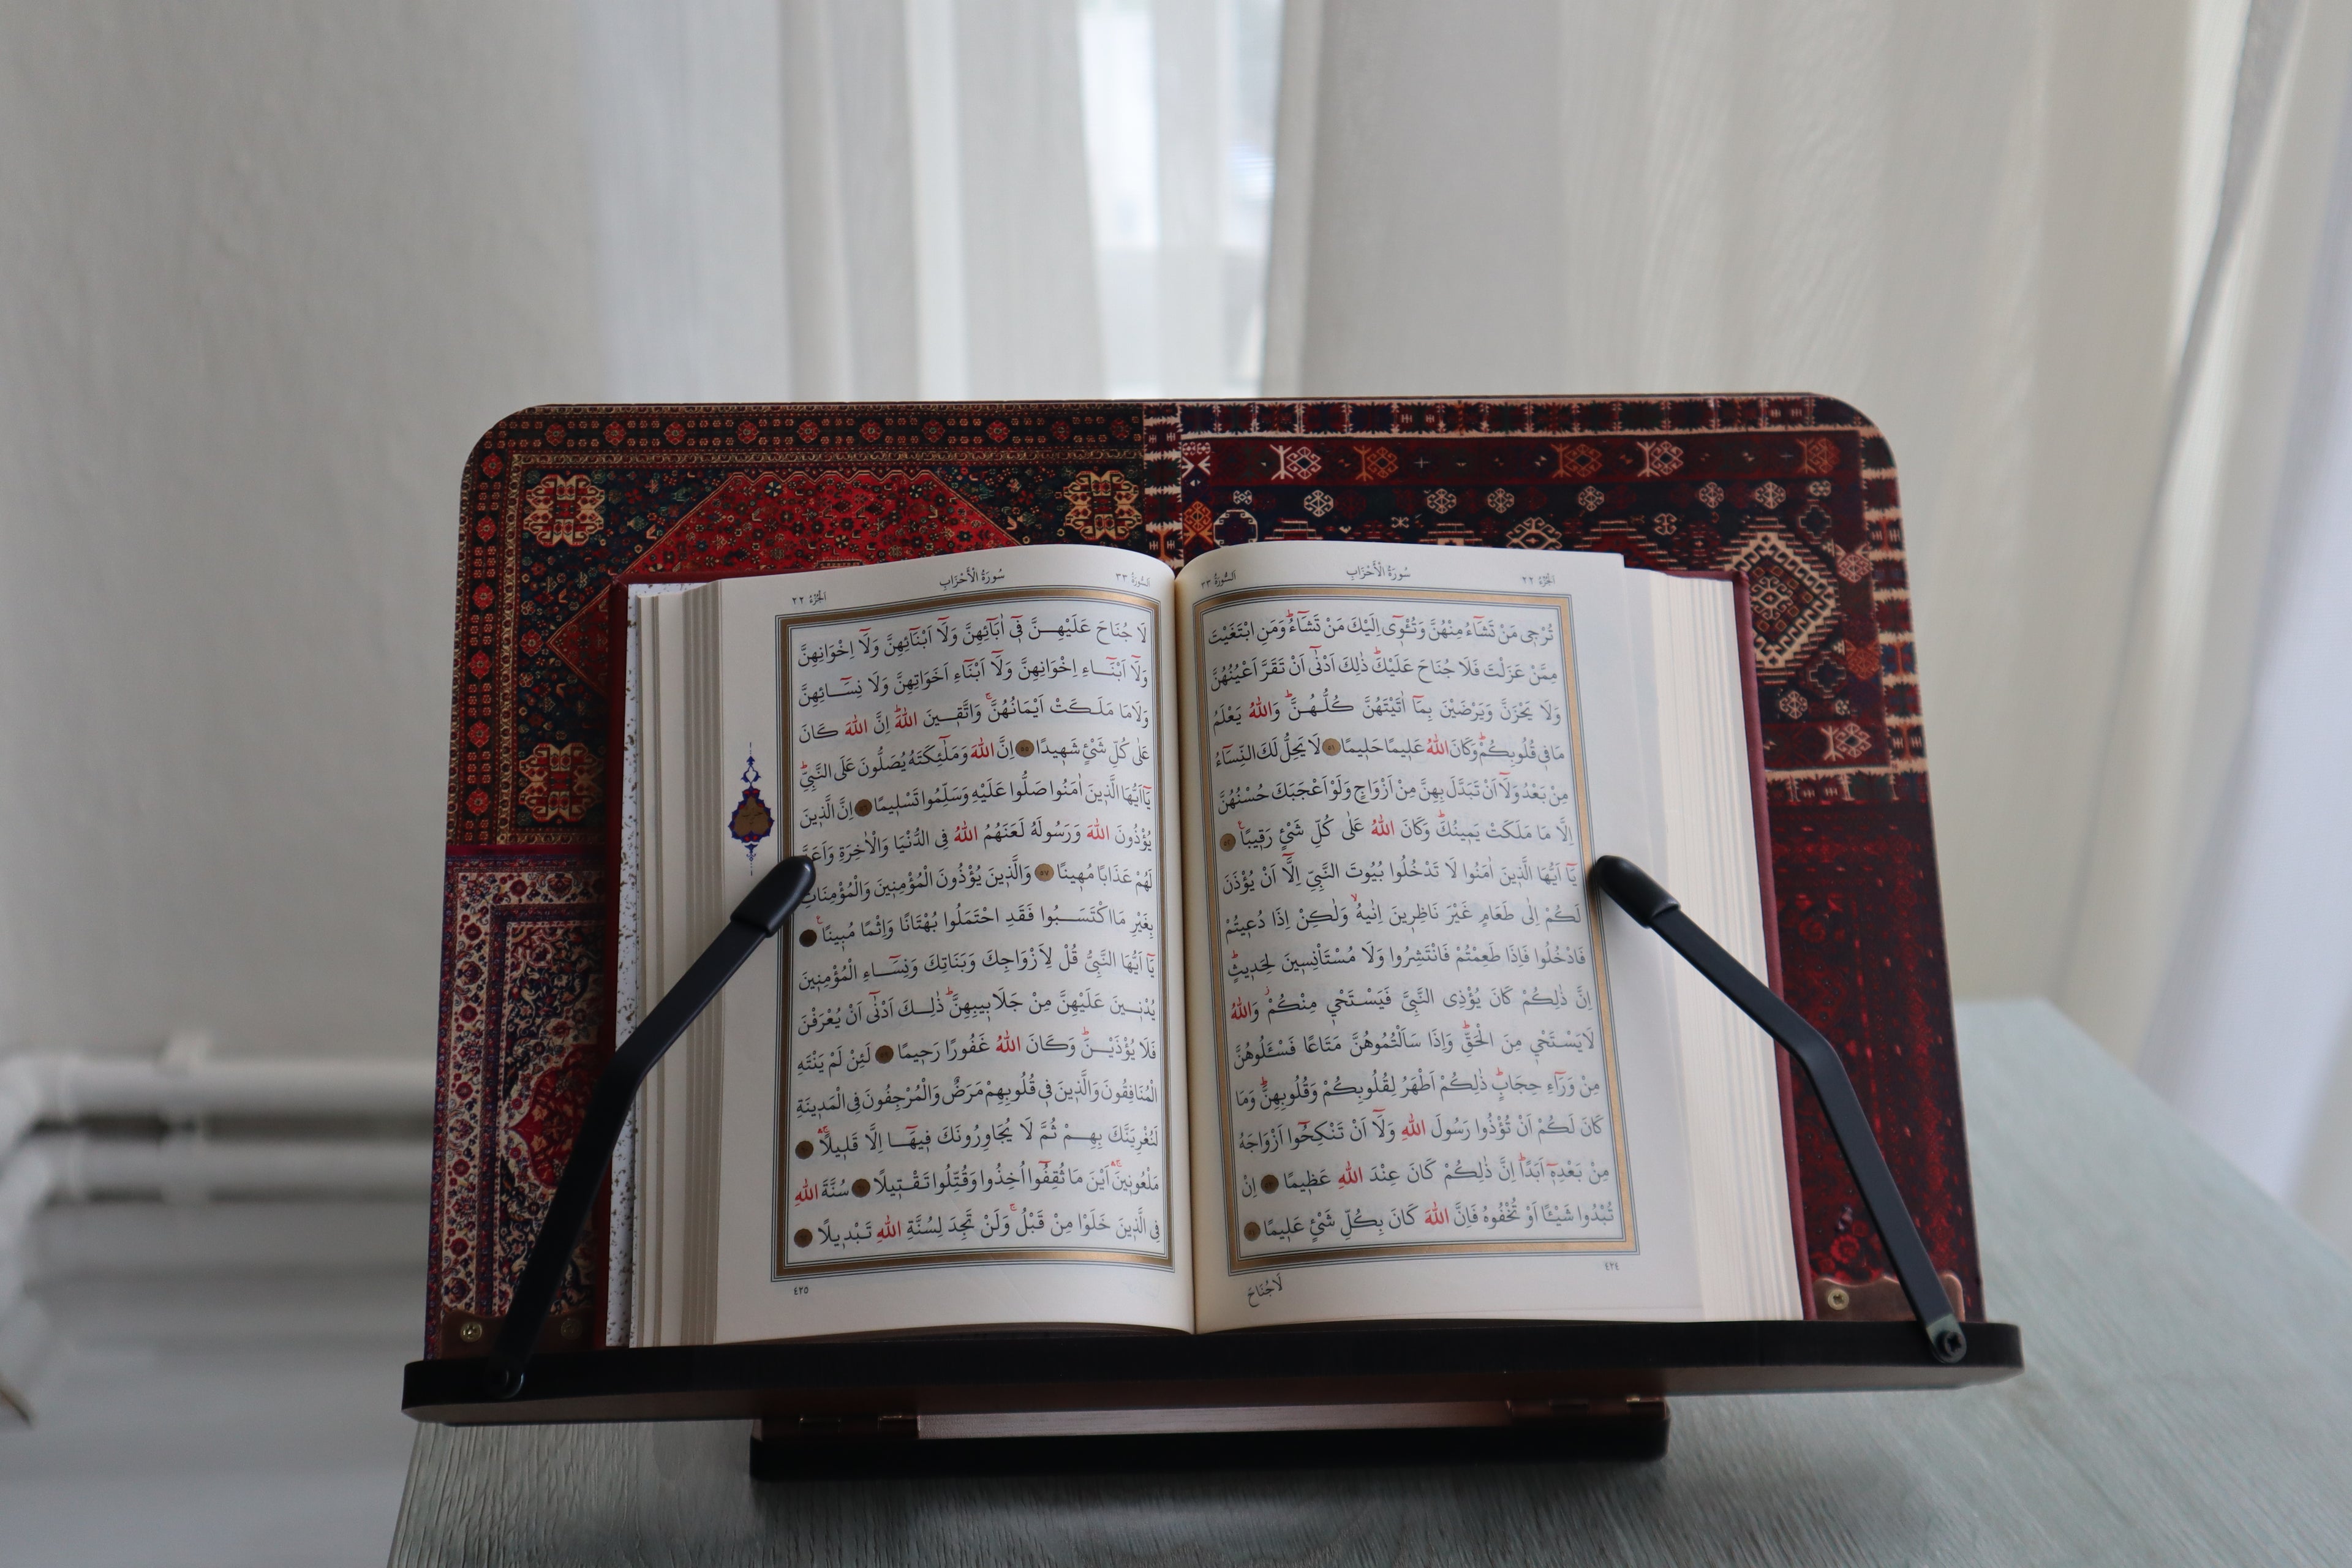 الجزء ٢٢
سُورَةُ الْأَحْزَابِ
السورة ٣٣
تُرْجٖى مَنْ تَشَٓاءُ مِنْهُنَّ وَتُـْٔوٖٓى اِلَيْكَ مَنْ تَشَٓاءُۜ وَمَنِ ابْتَغَيْتَ
مِمَّنْ عَزَلْتَ فَلَا جُنَاحَ عَلَيْكَۜ ذٰلِكَ اَدْنٰٓى اَنْ تَقَرَّ اَعْيُنُهُنَّ
وَلَا يَحْزَنَّ وَيَرْضَيْنَ بِمَٓا اٰتَيْتَهُنَّ كُلُّهُنَّۜ وَاللّٰهُ يَعْلَمُ
مَا فٖى قُلُوبِكُمْۜ وَكَانَ اللّٰهُ عَلٖيمًا حَلٖيمًا ٥١ لَا يَحِلُّ لَكَ النِّسَٓاءُ
مِنْ بَعْدُ وَلَٓا اَنْ تَبَدَّلَ بِهِنَّ مِنْ اَزْوَاجٍ وَلَوْ اَعْجَبَكَ حُسْنُهُنَّ
اِلَّا مَا مَلَكَتْ يَمٖينُكَۜ وَكَانَ اللّٰهُ عَلٰى كُلِّ شَيْءٍ رَقٖيبًا ٥٢
يَٓا اَيُّهَا الَّذٖينَ اٰمَنُوا لَا تَدْخُلُوا بُيُوتَ النَّبِيِّ اِلَّٓا اَنْ يُؤْذَنَ
لَكُمْ اِلٰى طَعَامٍ غَيْرَ نَاظِرٖينَ اِنٰيهُۙ وَلٰكِنْ اِذَا دُعٖيتُمْ
فَادْخُلُوا فَاِذَا طَعِمْتُمْ فَانْتَشِرُوا وَلَا مُسْتَأْنِسٖينَ لِحَدٖيثٍۜ
اِنَّ ذٰلِكُمْ كَانَ يُؤْذِى النَّبِيَّ فَيَسْتَحْيٖ مِنْكُمْۘ وَاللّٰهُ
لَا يَسْتَحْيٖ مِنَ الْحَقِّۜ وَاِذَا سَاَلْتُمُوهُنَّ مَتَاعًا فَسْـَٔلُوهُنَّ
مِنْ وَرَٓاءِ حِجَابٍۜ ذٰلِكُمْ اَطْهَرُ لِقُلُوبِكُمْ وَقُلُوبِهِنَّۜ وَمَا
كَانَ لَكُمْ اَنْ تُؤْذُوا رَسُولَ اللّٰهِ وَلَٓا اَنْ تَنْكِحُٓوا اَزْوَاجَهُ
مِنْ بَعْدِهٖٓ اَبَدًاۜ اِنَّ ذٰلِكُمْ كَانَ عِنْدَ اللّٰهِ عَظٖيمًا ٥٣ اِنْ
تُبْدُوا شَيْـًٔا اَوْ تُخْفُوهُ فَاِنَّ اللّٰهَ كَانَ بِكُلِّ شَيْءٍ عَلٖيمًا ٥٤
٤٢٤
لَا جُنَاحَ
السورة ٣٣
سُورَةُ الْأَحْزَابِ
الجزء ٢٢
لَا جُنَاحَ عَلَيْهِنَّ فٖٓى اٰبَٓائِهِنَّ وَلَٓا اَبْنَٓائِهِنَّ وَلَٓا اِخْوَانِهِنَّ
وَلَٓا اَبْنَٓاءِ اِخْوَانِهِنَّ وَلَٓا اَبْنَٓاءِ اَخَوَاتِهِنَّ وَلَا نِسَٓائِهِنَّ
وَلَا مَا مَلَكَتْ اَيْمَانُهُنَّۚ وَاتَّقٖينَ اللّٰهَۜ اِنَّ اللّٰهَ كَانَ
عَلٰى كُلِّ شَيْءٍ شَهٖيدًا ٥٥ اِنَّ اللّٰهَ وَمَلٰٓئِكَتَهُ يُصَلُّونَ عَلَى النَّبِيِّۜ
يَٓا اَيُّهَا الَّذٖينَ اٰمَنُوا صَلُّوا عَلَيْهِ وَسَلِّمُوا تَسْلٖيمًا ٥٦ اِنَّ الَّذٖينَ
يُؤْذُونَ اللّٰهَ وَرَسُولَهُ لَعَنَهُمُ اللّٰهُ فِى الدُّنْيَا وَالْاٰخِرَةِ وَاَعَدَّ
لَهُمْ عَذَابًا مُهٖينًا ٥٧ وَالَّذٖينَ يُؤْذُونَ الْمُؤْمِنٖينَ وَالْمُؤْمِنَاتِ
بِغَيْرِ مَا اكْتَسَبُوا فَقَدِ احْتَمَلُوا بُهْتَانًا وَاِثْمًا مُبٖينًا ٥٨
يَٓا اَيُّهَا النَّبِيُّ قُلْ لِاَزْوَاجِكَ وَبَنَاتِكَ وَنِسَٓاءِ الْمُؤْمِنٖينَ
يُدْنٖينَ عَلَيْهِنَّ مِنْ جَلَابٖيبِهِنَّۜ ذٰلِكَ اَدْنٰٓى اَنْ يُعْرَفْنَ
فَلَا يُؤْذَيْنَۜ وَكَانَ اللّٰهُ غَفُورًا رَحٖيمًا ٥٩ لَئِنْ لَمْ يَنْتَهِ
الْمُنَافِقُونَ وَالَّذٖينَ فٖى قُلُوبِهِمْ مَرَضٌ وَالْمُرْجِفُونَ فِى الْمَدٖينَةِ
لَنُغْرِيَنَّكَ بِهِمْ ثُمَّ لَا يُجَاوِرُونَكَ فٖيهَٓا اِلَّا قَلٖيلًاۚۛ ٦٠
مَلْعُونٖينَۚۛ اَيْنَ مَا ثُقِفُٓوا اُخِذُوا وَقُتِّلُوا تَقْتٖيلًا ٦١ سُنَّةَ اللّٰهِ
فِى الَّذٖينَ خَلَوْا مِنْ قَبْلُۚ وَلَنْ تَجِدَ لِسُنَّةِ اللّٰهِ تَبْدٖيلًا ٦٢
٤٢٥